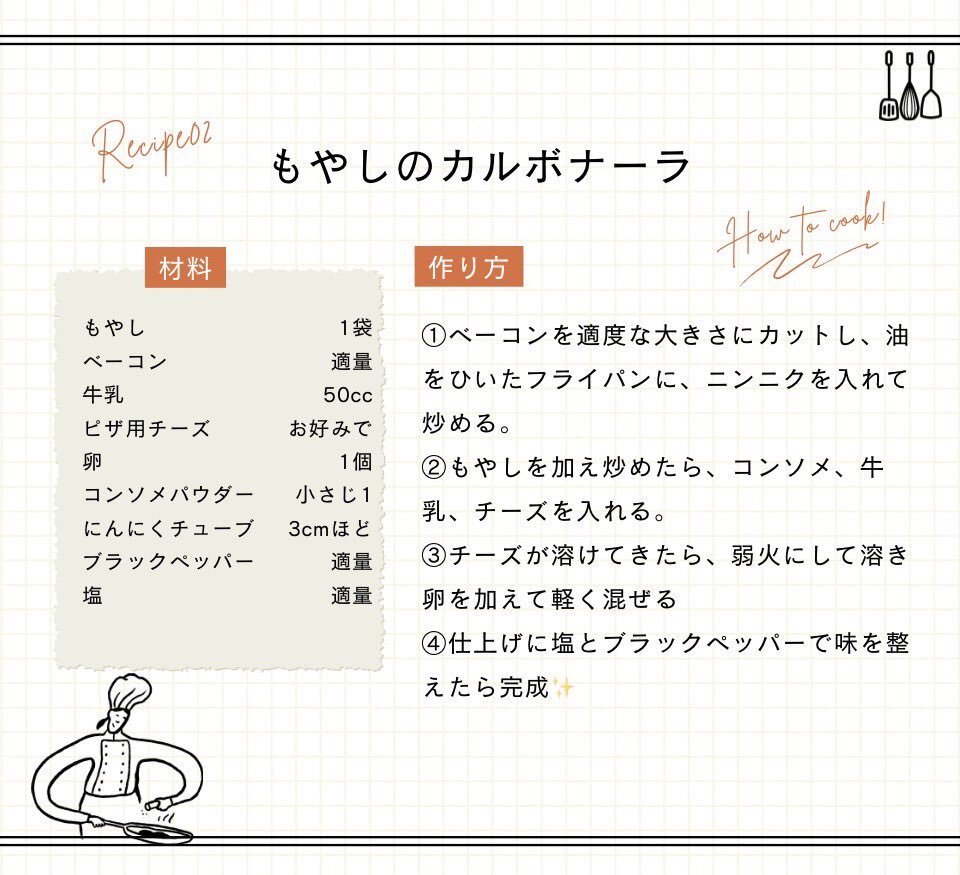 Recipe02
もやしのカルボナーラ
How to cook!
材料
もやし 1袋
ベーコン 適量
牛乳 50cc
ピザ用チーズ お好みで
卵 1個
コンソメパウダー 小さじ1
にんにくチューブ 3cmほど
ブラックペッパー 適量
塩 適量
作り方
①ベーコンを適度な大きさにカットし、油
をひいたフライパンに、ニンニクを入れて
炒める。
②もやしを加え炒めたら、コンソメ、牛
乳、チーズを入れる。
③チーズが溶けてきたら、弱火にして溶き
卵を加えて軽く混ぜる
④仕上げに塩とブラックペッパーで味を整
えたら完成✨